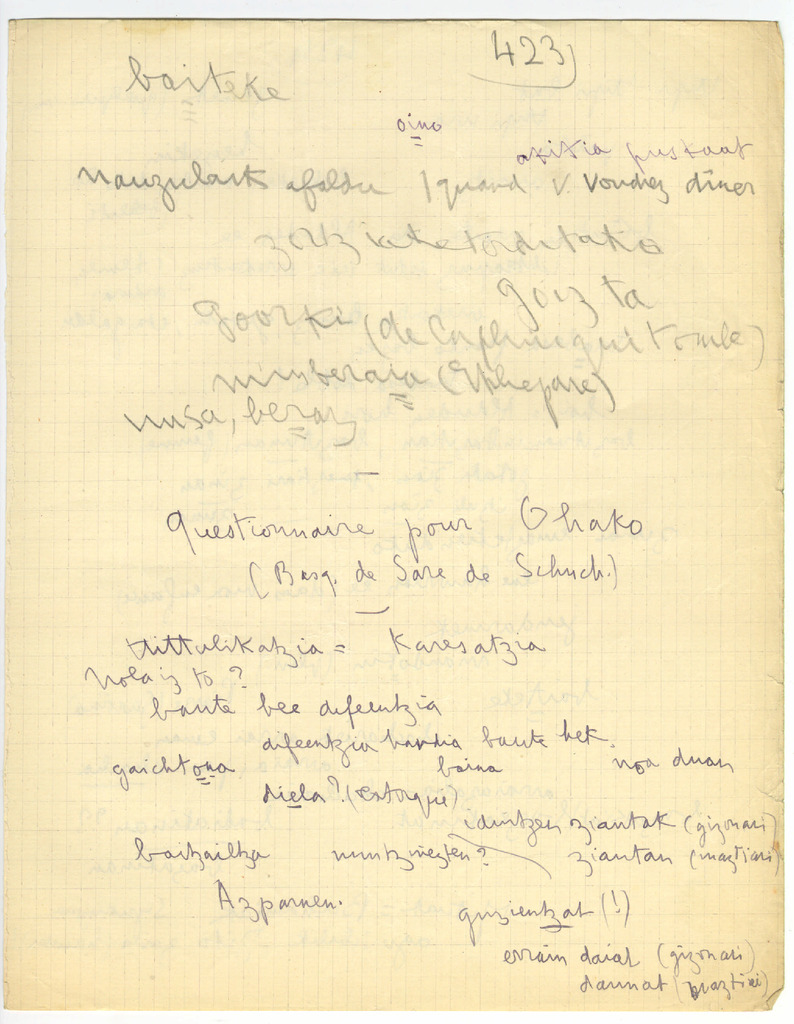 423)
baiteke
oino
axixia puskaat
nauzulaik afaldu / quand V. Voudrez dîner
goiz ta
goorki (de Capbun qui tombe)
minberaia (Ethepare)
nusa, beraz
Questionnaire pour Ohako
(Basq. de Sare de Schuch.)
tittulikatzia = Karesatzia
Nola iz to ?
baute bee difeentzia
difeentzia handia baute hek.
gaichtona baina noa duan
diela ? (estorque)
iduitzen ziautak (gizonari)
baitzaitza ziautan (maztiari)
Azparnen.
guzientzat (!)
errain daiat (gizonari)
daunat (maztiri)